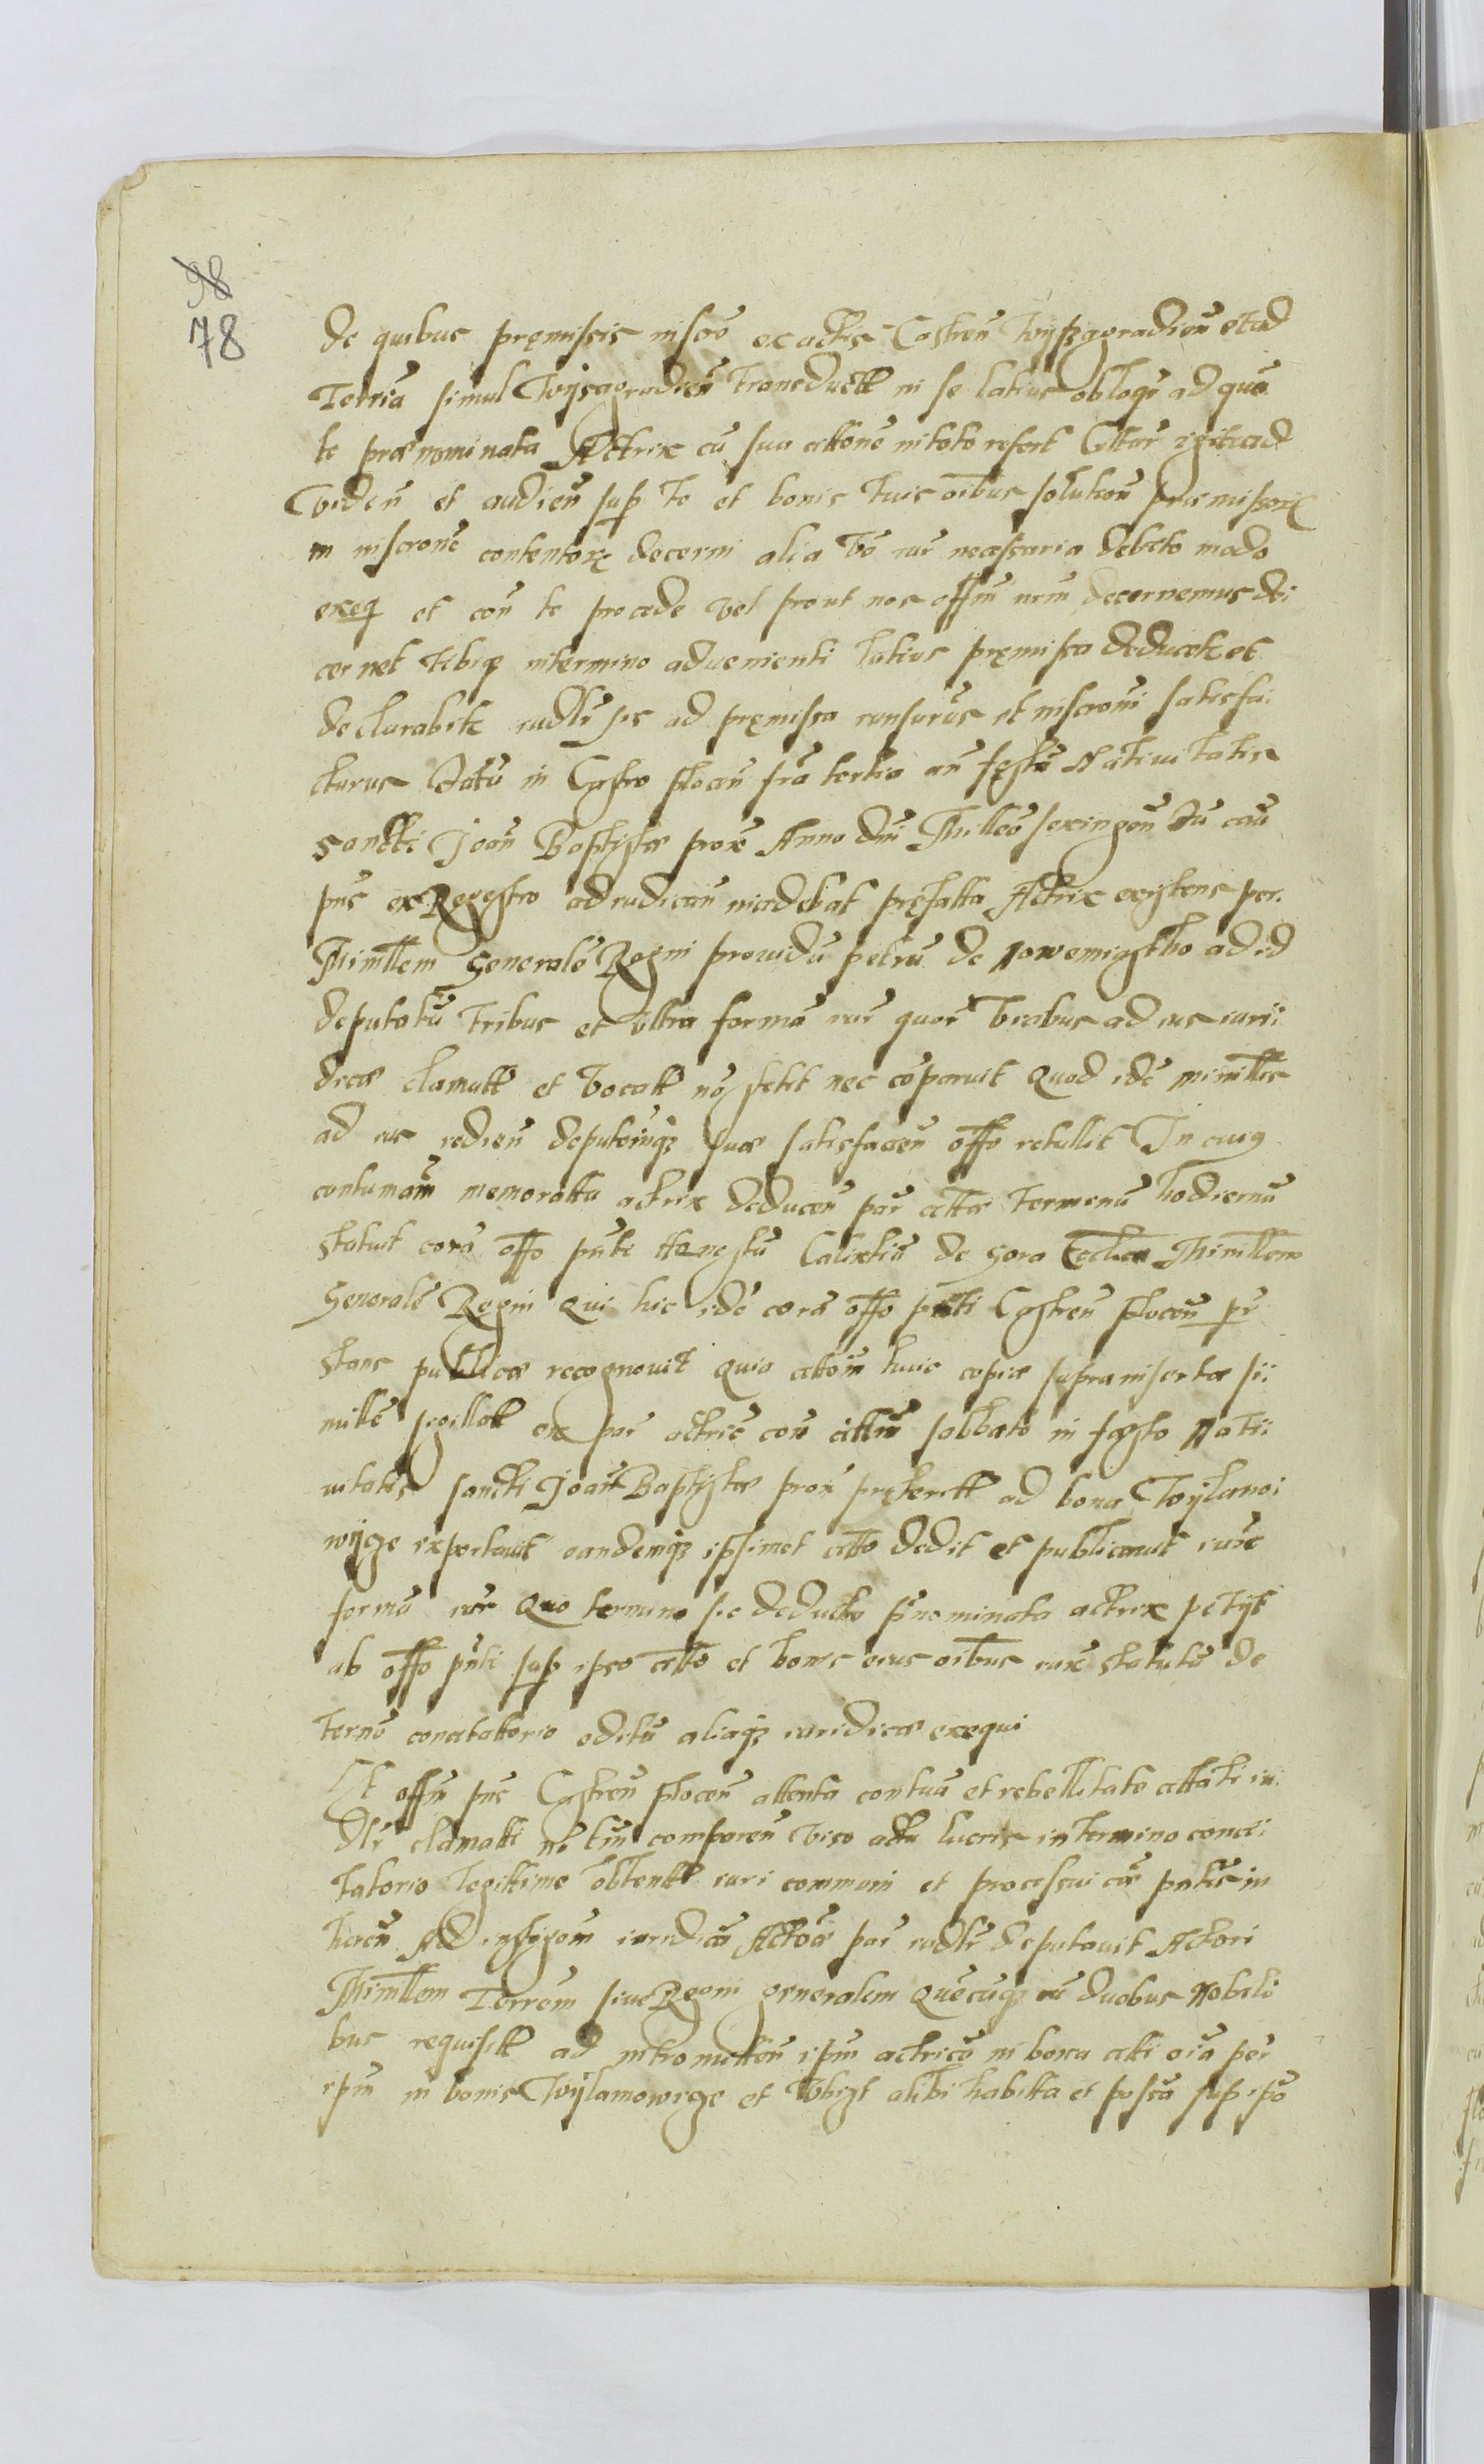 98
78
de quibus pręmissis inscrō ex actis Castren Wyszgoradien et ad
Terria simul Wysgoradien transductt in se latius obloqr ad quā
te praenominata Actrix cū sua attone in toto refert Cittar igitur ad
Viden et audien sup te et bonis tuis oibus solution praemissorʒ
in inscrone contentorʒ decerni alia vō iur necessaria debito modo
exeq et con te procede vel prout nos offm nrm decernemus de
cernet tibiqʒ in termino advenienti latius pręmissa deducet et
declarabit iudlr sis ad pręmissa runsurus et inscroni satisfa
cturus Datū in Castro plocen fra tertia an festū Nativitatis
Sancti Joan Baptistae prox Anno dni Milleo sexingen In cau
pns ex Regestro ad iudican incidebat pręfatta Actrix existens per
Minrllem Generalē Regni providū petrū de Nowemiastho ad id
deputatū tribus et ultra formā iur quor vicibus ad ius iuri
dicae clamatt et vocatt nō stetit nec cōparuit Quod idē minrllis
ad ius redien deputoniqʒ suae satisfacien offo retullit In cuiq
contumām memoratta actrix deducen par cittae terminū hodiernū
statuit corā offo pnti Honestū Calixtū de Gora Minrllem
Generalē Regni Qui hic idē corā offo pnti Castren plocen pr
stans publicae recognovit quia citōm huic copiae suprainsertae si
millē sigillatt ex par actric con cittm sabbato in festo Nati
vitatis sancti Joan Baptistae prox pręteritt ad bona Wylamo
wycze exportavit eandemqʒ ipsimet citto dedit et publicavit iuxe
formā iur Quo termino sic deducto pnominata actrix petyt
ab offo pnti sup ipso citto et bonis eius oibus iux statutū de
ternō concitatorio editū aliaqʒ iuridicae exequi
Et offm pns Castren plocen attenta contuā et rebellitate cittati iu
dlr clamatti nō tm comparen viso actu lucris in termino conci
tatorio legittime obtentt iuri communi et processui cās pntis in
heren Ad instigom iuridicā Actoē par iudlr deputavit Actori
Minrllem Terrem sive Regni generalem Quēcūqʒ cū duobus Nobili
bus requisitt ad intromitten ipm actricē in bona citti oia per
ipm in bonis Wylamowicze et ubiqʒ alibi habitta et possā sup ipō